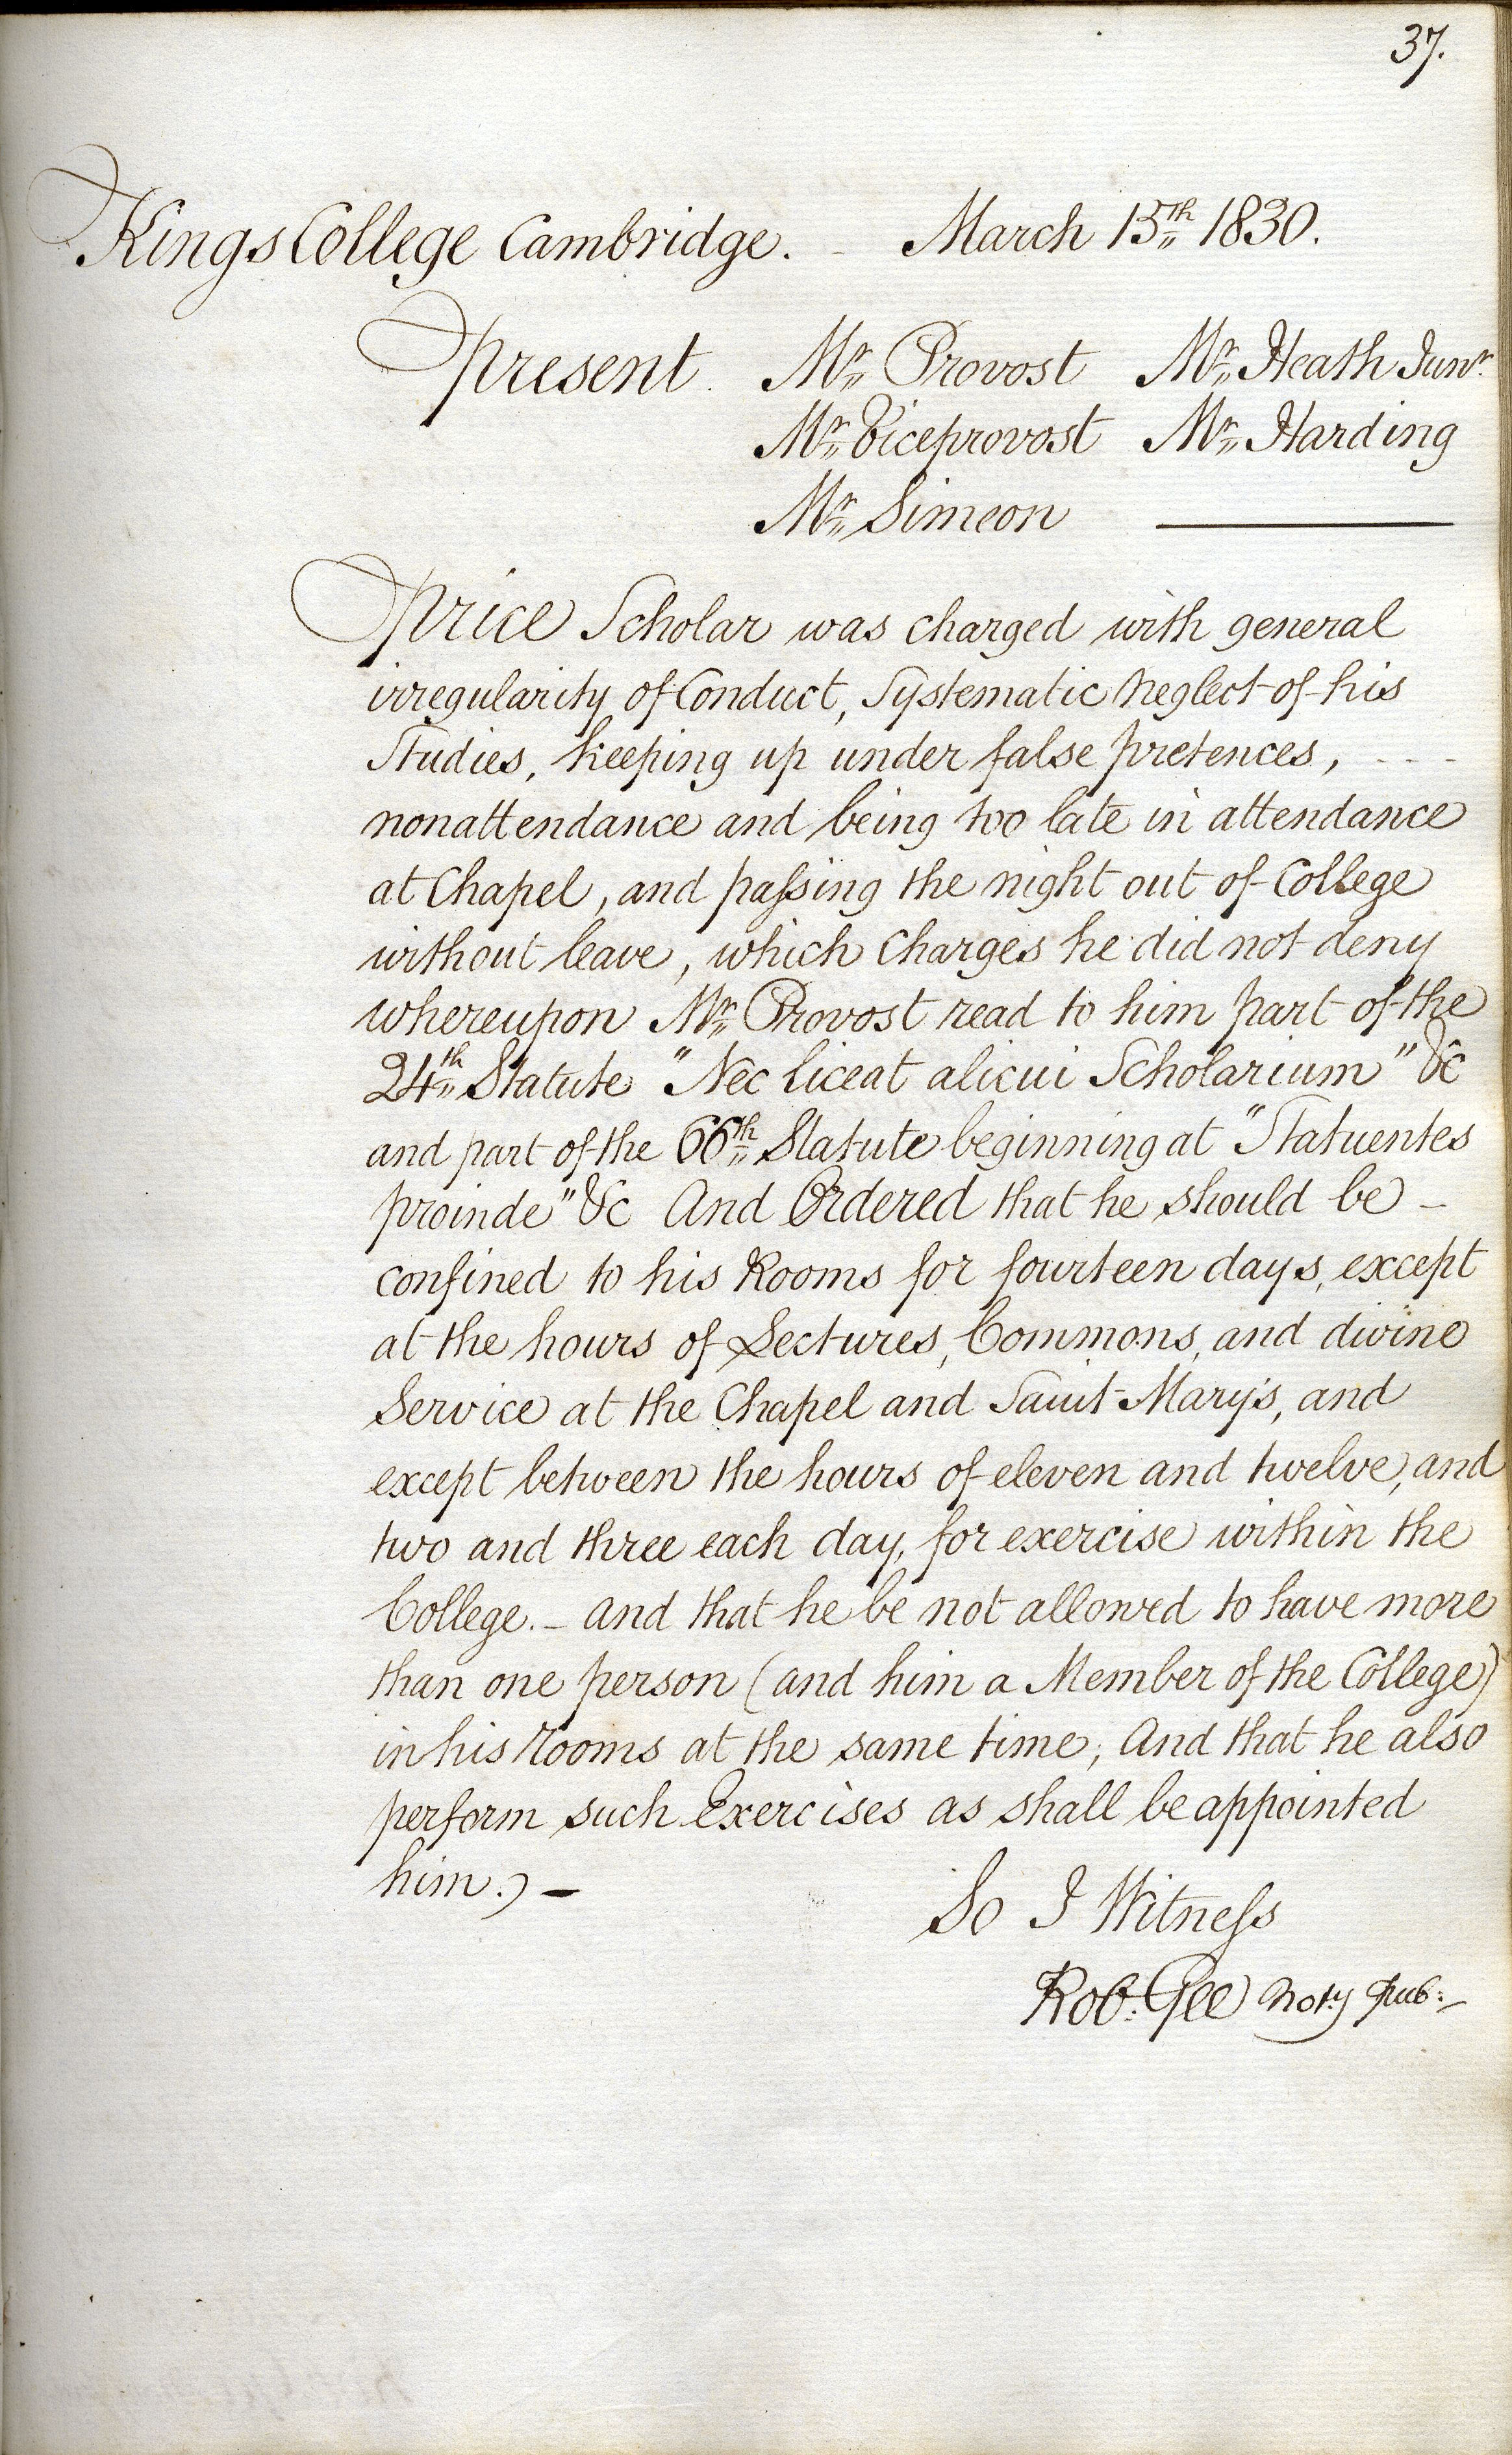 37.
Kings College Cambridge. - March 15th 1830.
Present. Mr Provost Mr Heath Junr.
Mr Viceprovost Mr Harding
Mr Simeon
Price Scholar was charged with general
irregularity of Conduct, Systematic Neglect of his
Studies, keeping up under false pretences, - - -
nonattendance and being too late in attendance
at Chapel, and passing the night out of College
without leave, which Charges he did not deny
whereupon Mr Provost read to him part of the
24th Statute "Nec liceat alicui Scholarium" &c
and part of the 66th Statute beginning at "Statuentes
proinde" &c And Ordered that he should be -
confined to his Rooms for fourteen days, except
at the hours of Lectures, Commons, and divine
Service at the Chapel and Saint Mary's, and
except between the hours of eleven and twelve, and
two and three each day, for exercise within the
College. - and that he be not allowed to have more
than one person (and him a Member of the College)
in his rooms at the same time; And that he also
perform such Exercises as shall be appointed
him. -
So I Witness
Rob: Gee Noty Pub: -